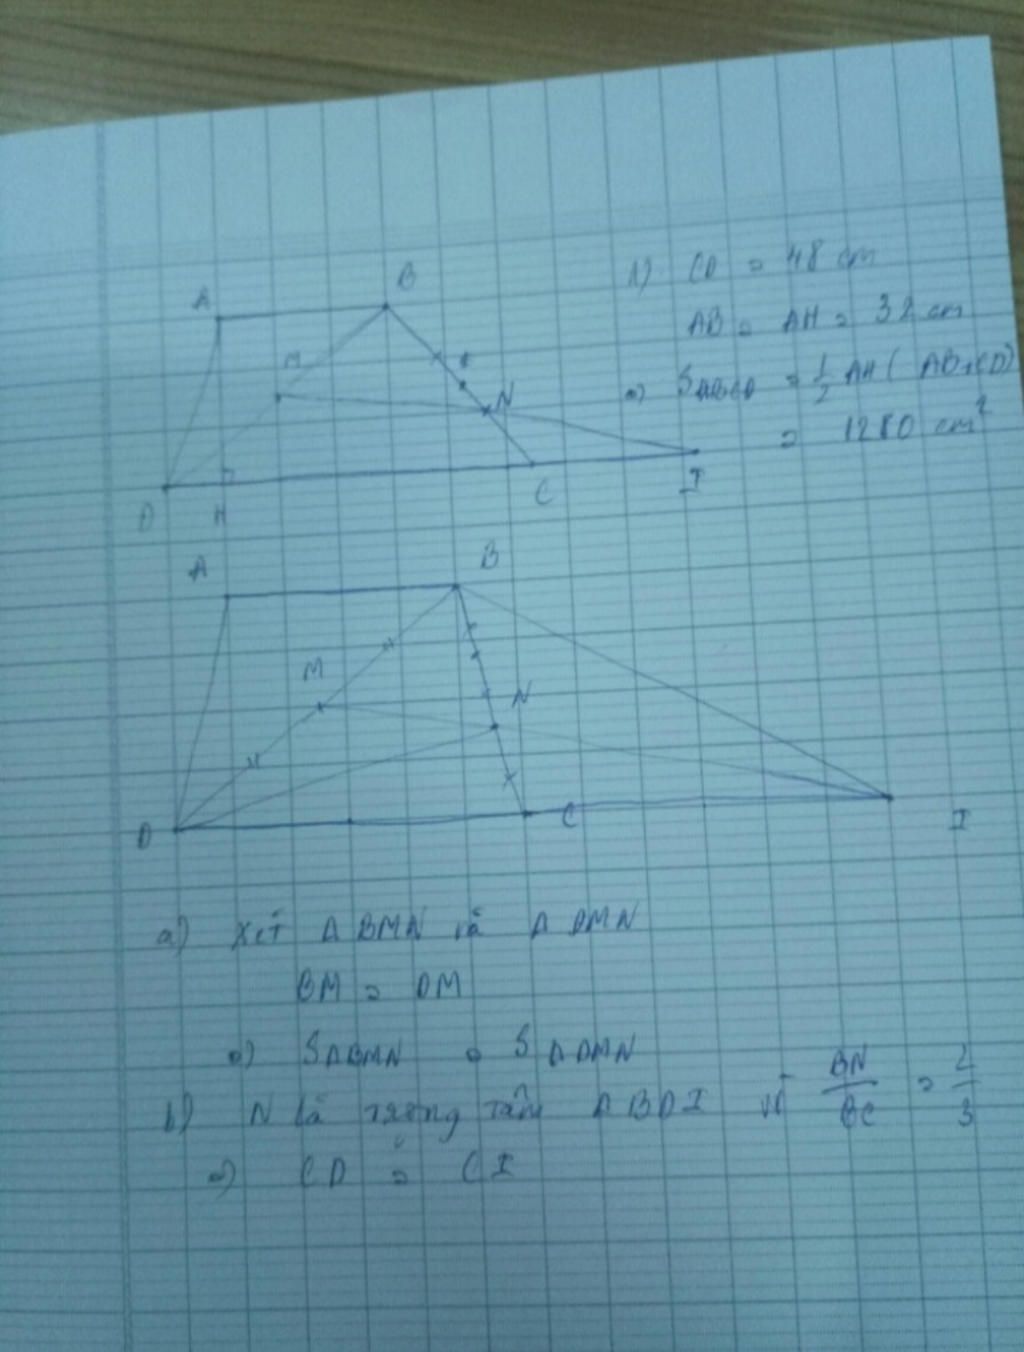 A B
1) CD = 48 cm
AB = AH = 32 cm
M
N
=) SABCD = 1/2 AH ( AB+CD)
= 1280 cm²
D H C I
A B
M
N
D C I
a) Xét Δ BMN và Δ DMN
BM = DM
=) SΔBMN = SΔDMN
b) N là trọng tâm Δ BDI vì BN/BC = 2/3
=) CD = CI